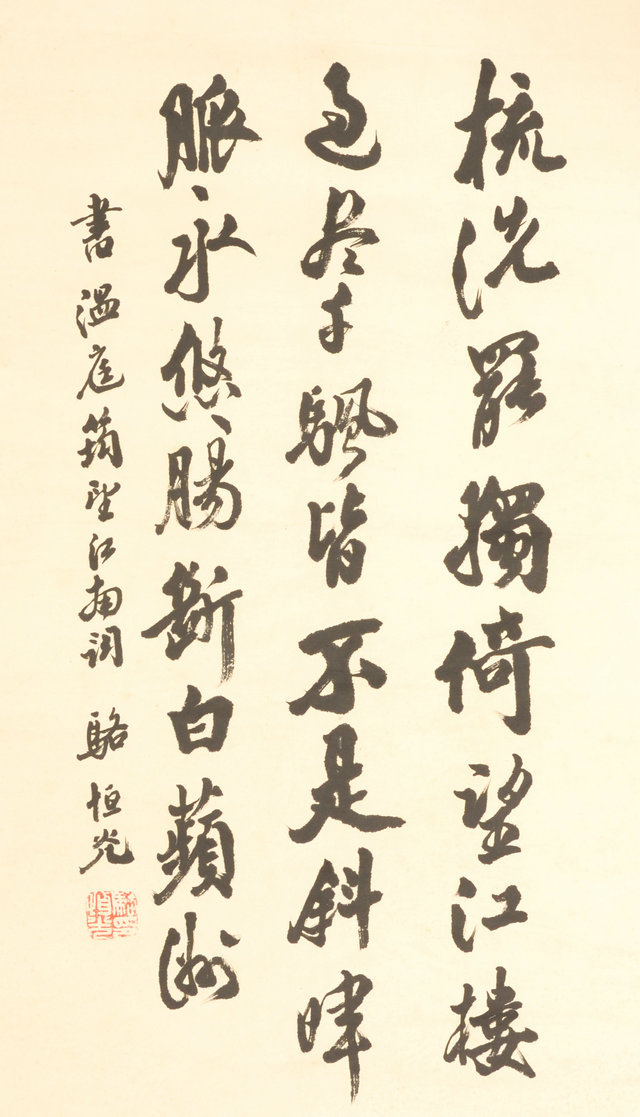 梳洗罷獨倚望江樓
過尽千颿皆不是斜暉
脈丶水悠丶腸斷白蘋洲
書溫庭筠望江南詞 駱恒光